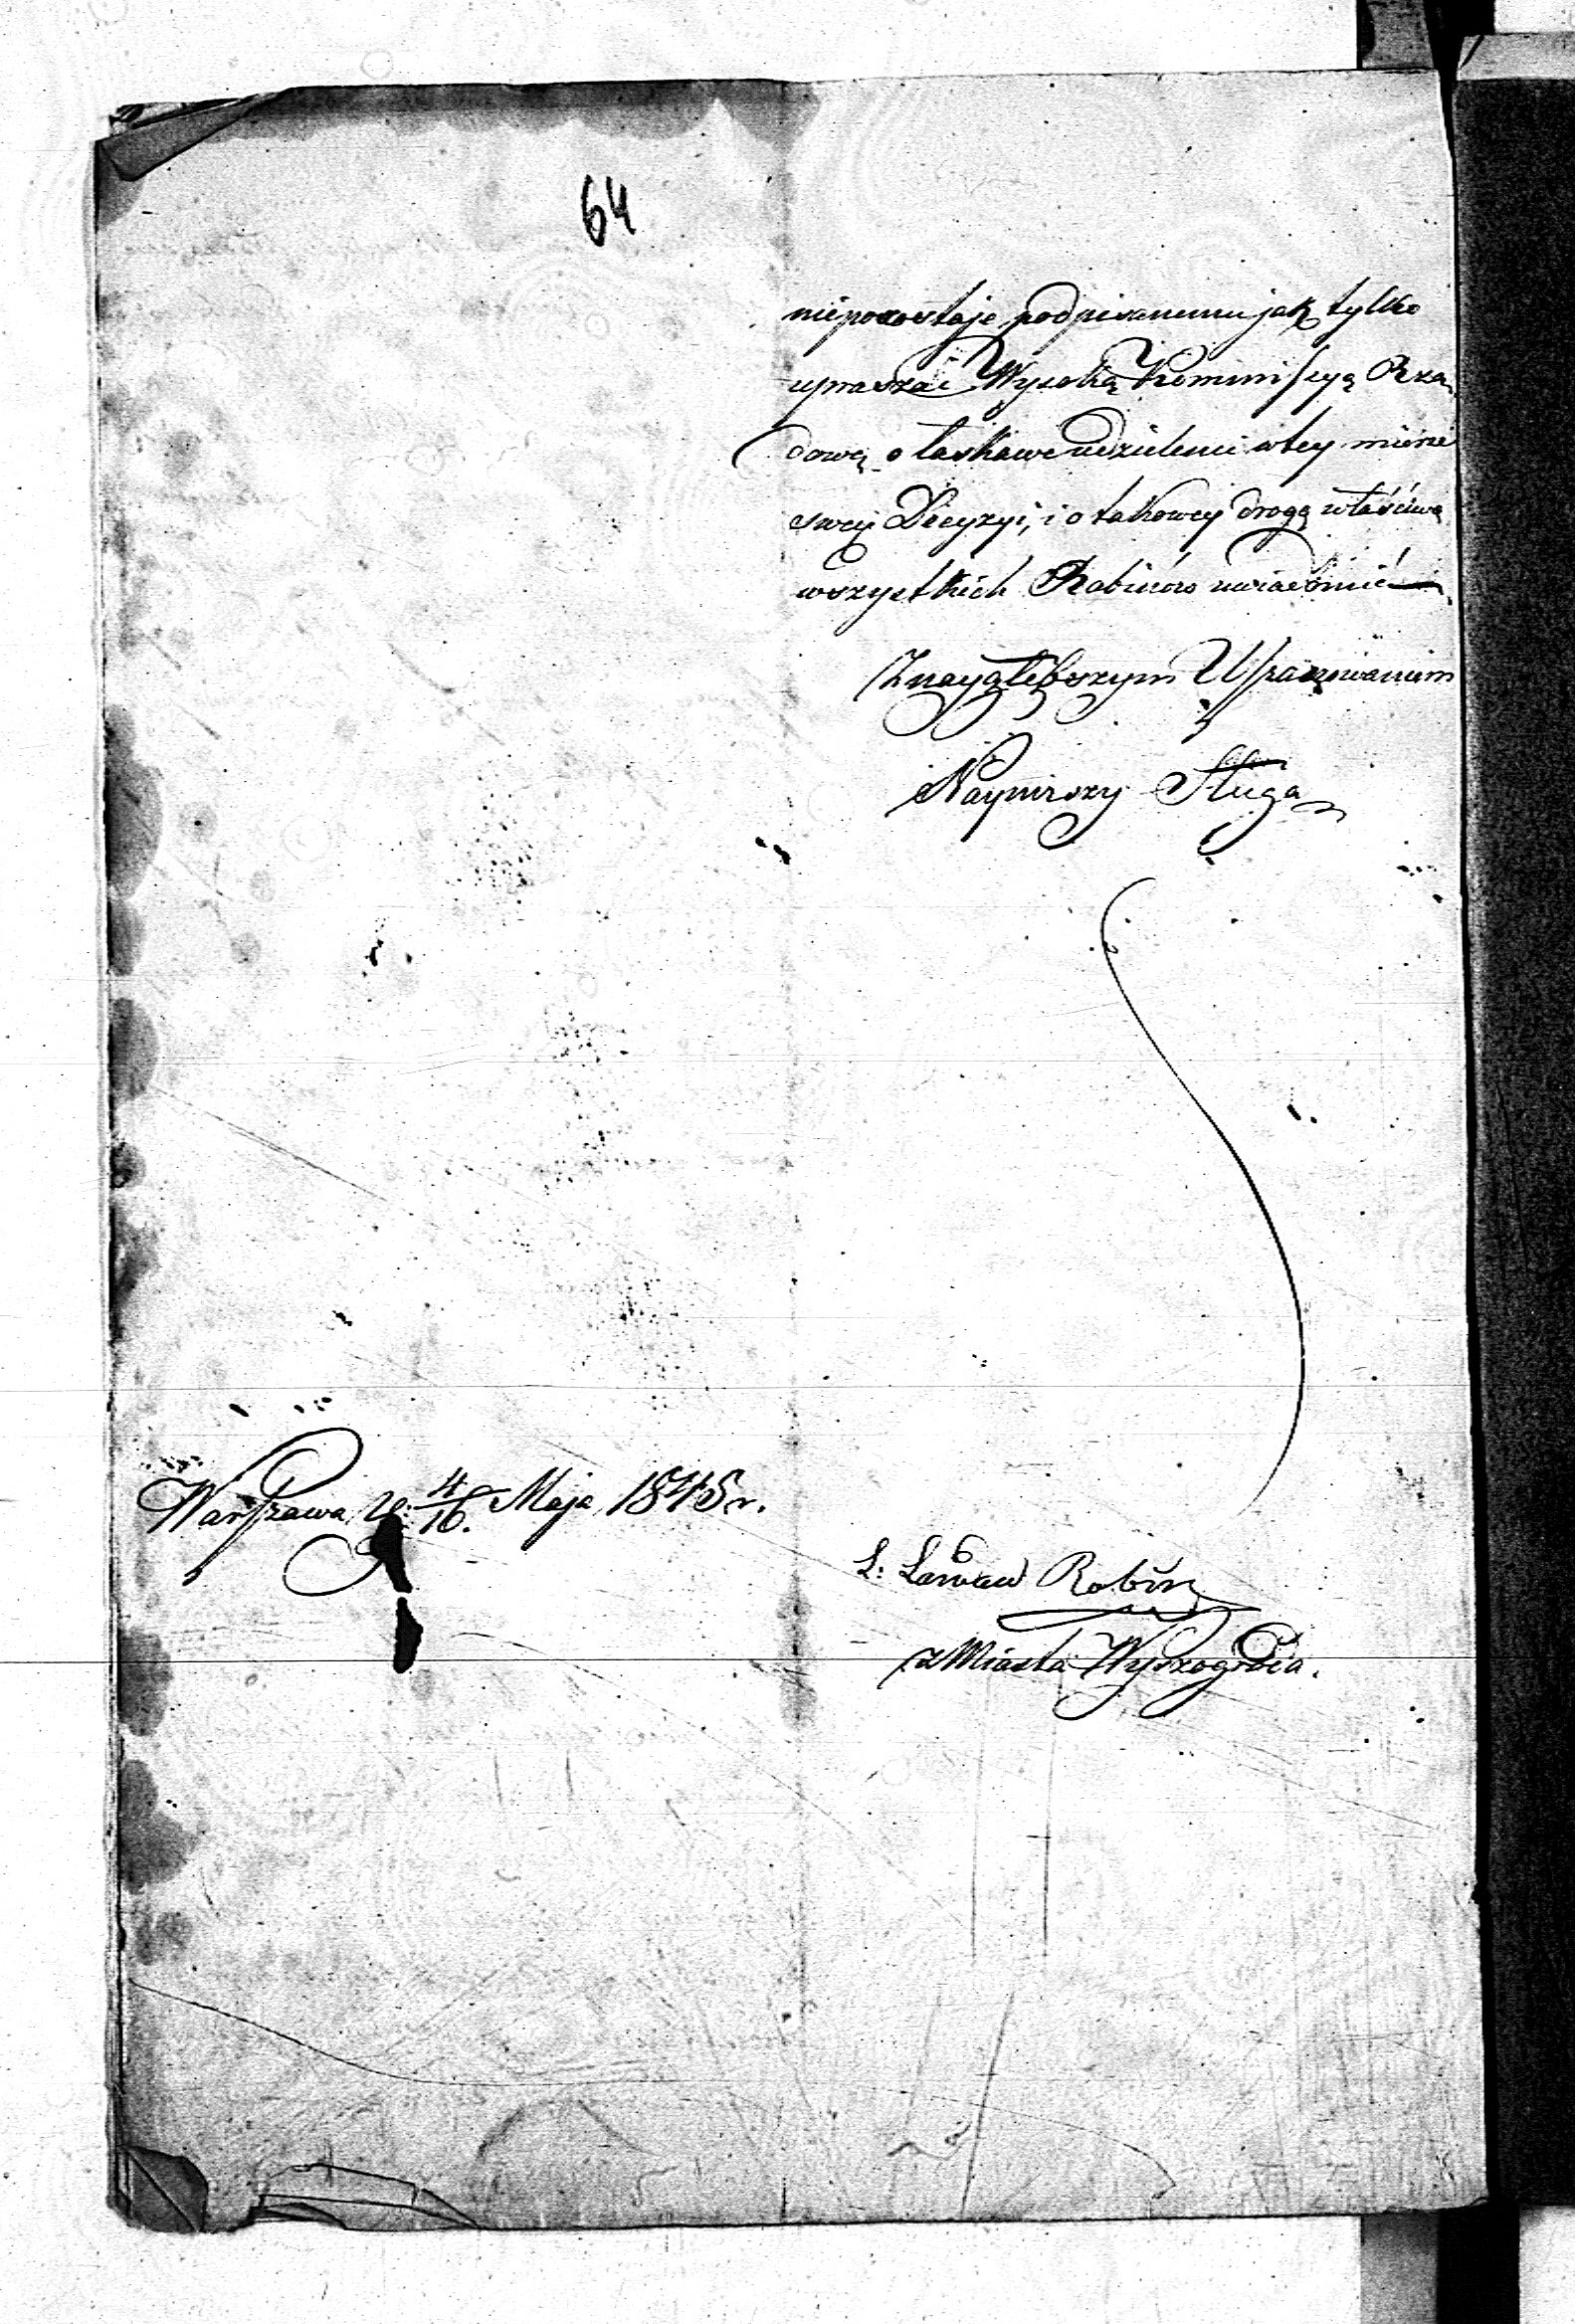 64
niepozostaje podpisanemu jak tylko
upraszać Wysoką Kommissyą Rzą
dową o łaskawe udzielenie w tey mierze
swey Decyzyi, i o takowey drogą właściwą
wszystkich Rabinów uwiadomić
Z naygłębszym Uszanowaniem
Nayniższy Sługa
Warszawa d: 4/16. Maja 1845 r.
L: Rabin
z Miasta Wyszogroda.